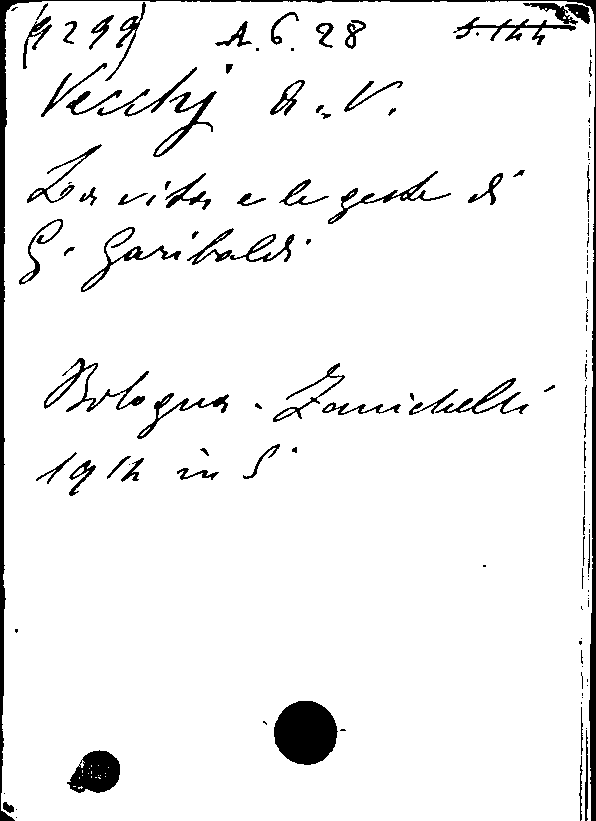 (9299) A.6.28 S.144
Vecchj A. V.
La vita e le geste di
G. Garibaldi
Bologna - Zanichelli
1912 in 8°